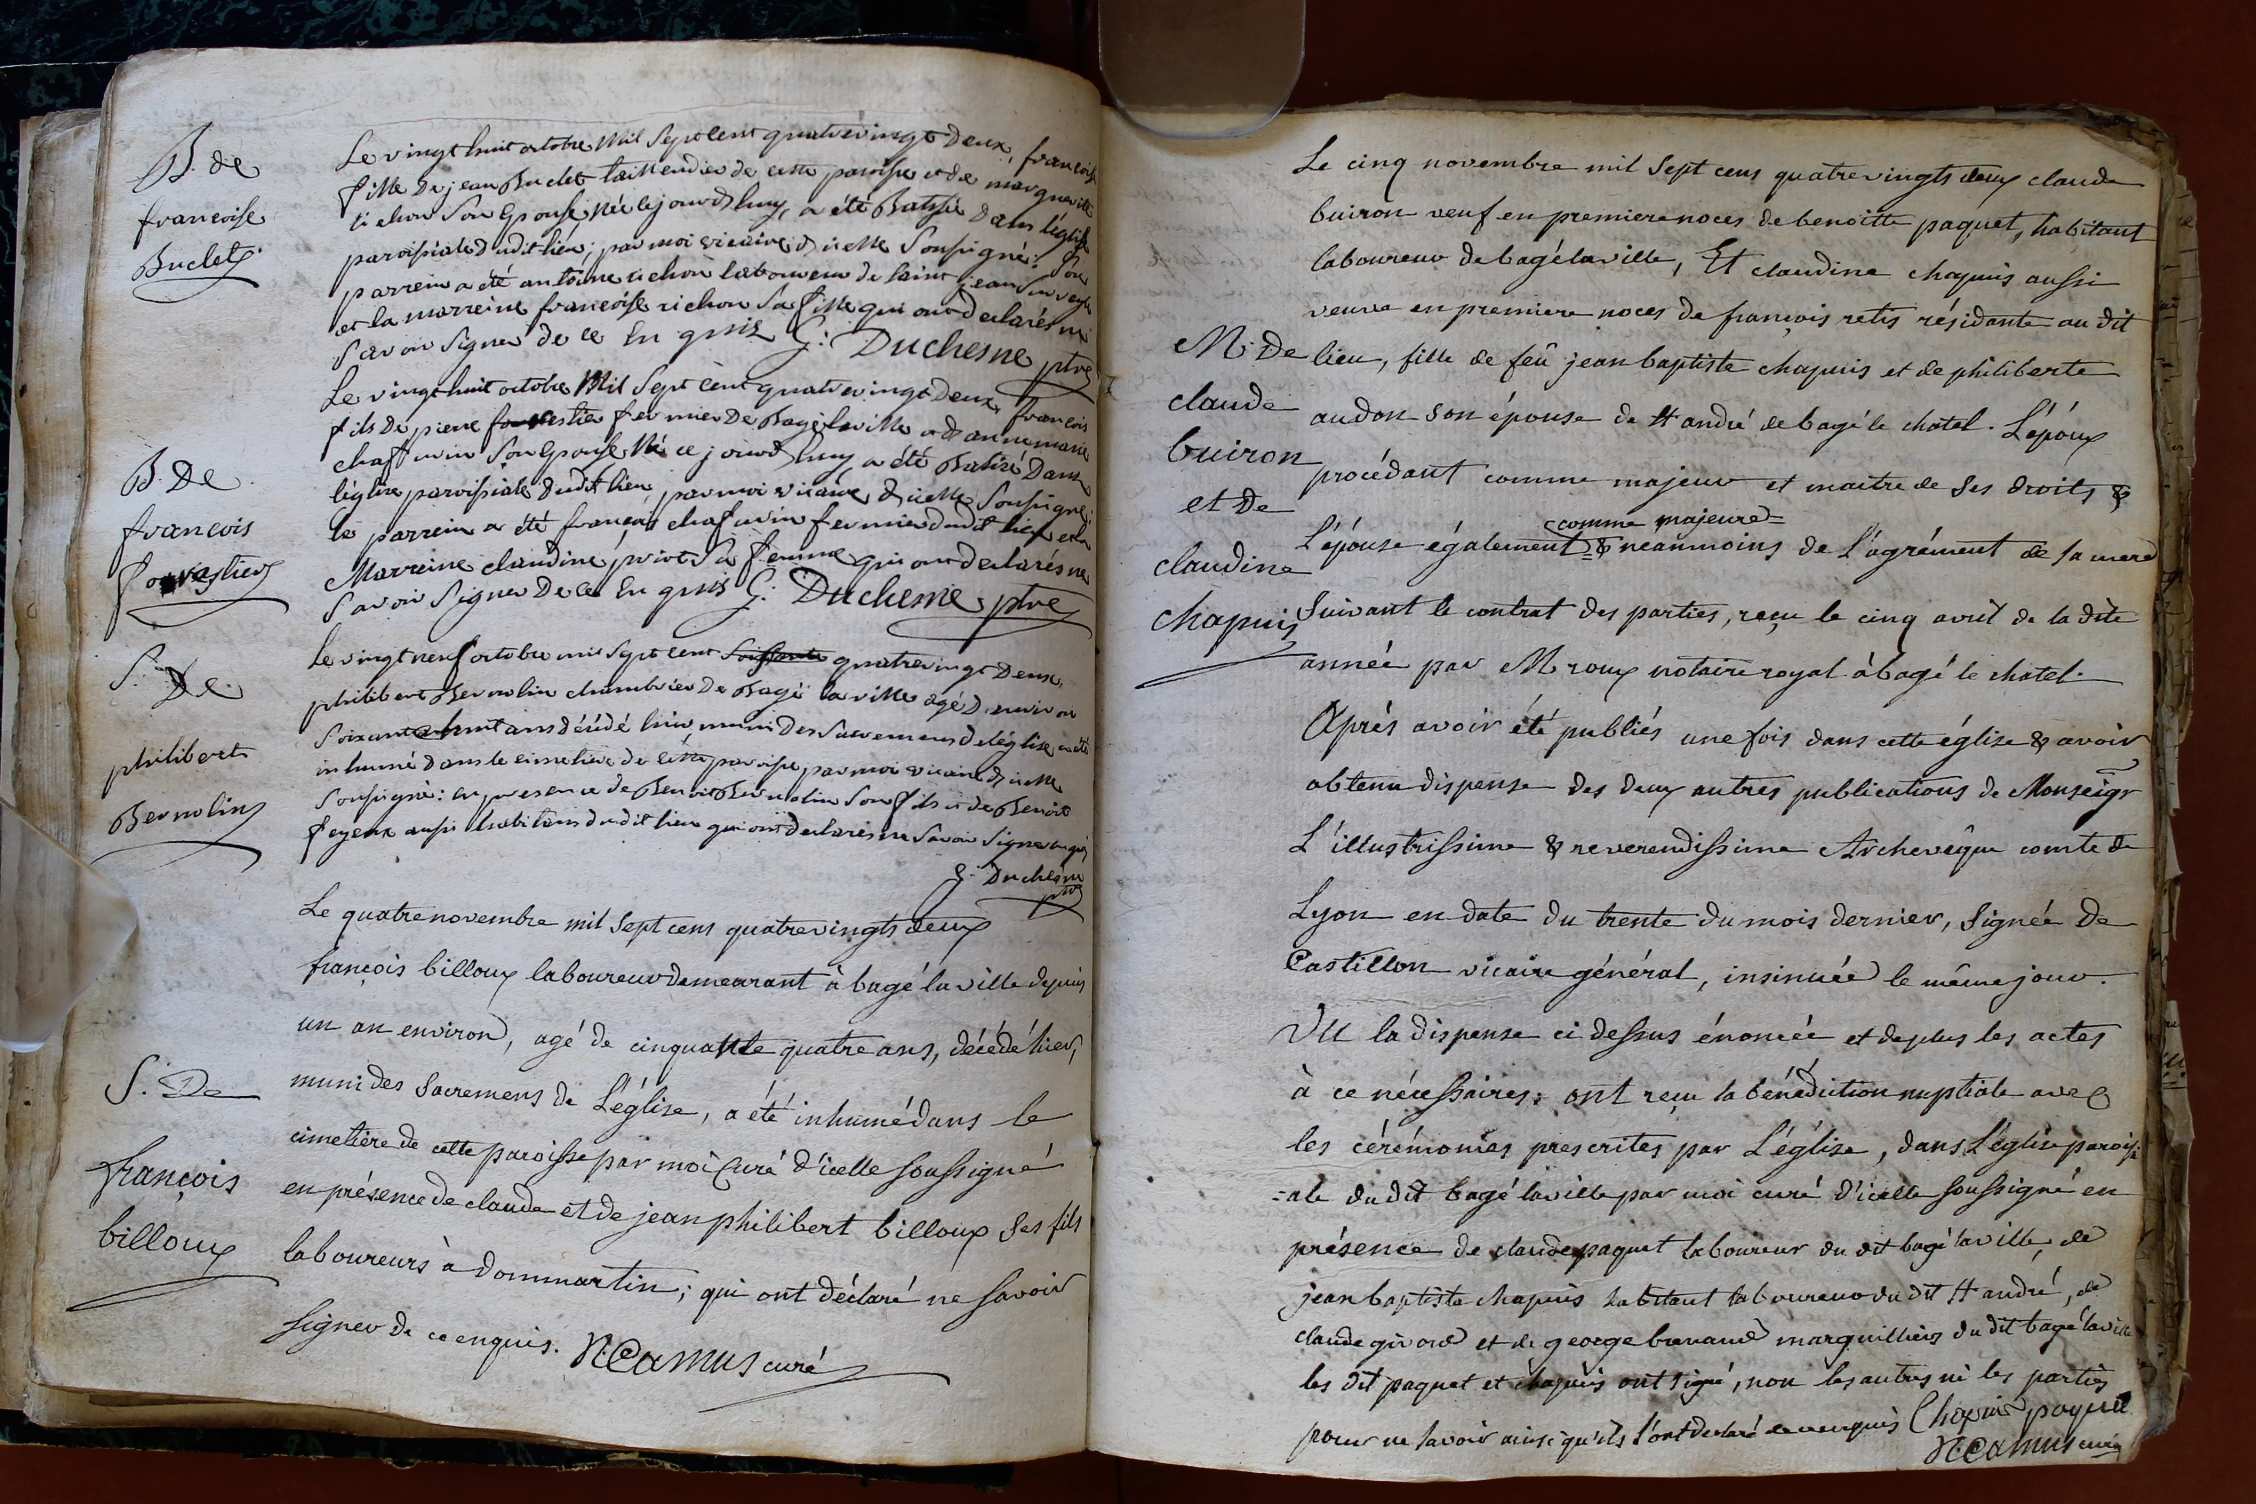 B. de
françoise
Buclet
Le vingt huit octobre Mil Sept Cent quatrevingt Deux, françoise
fille De jean Buclet taillendier de cette paroisse et de marguerite
richon Son Epouse, Née le jourdhuy, a été Batisée dans l'église
paroissiale dudit lieu, par moi vicaire d'icelle Soussigné: Son
parrein a été antoine richon laboureur de Saint jean Sur veyle
et la marreine francoise richon Sa fille qui ont declarés ne
Savoir Signer de ce Enquis G: Duchesne ptre
B. De
francois
forestier
Le vingt huit octobre Mil Sept Cent quatrevingt Deux, francois
fils De pierre forestier fermier De Bagé la ville et d'anne marie
chaffurin Son Epouse Né ce jourdhuy a été Batisé Dans
léglise paroissiale dudit lieu, par moi vicaire d'icelle Soussigné:
le parrein a été françois chaffurin fermier dudit lieu et la
Marreine claudine Sa femme qui ont declarés ne
Savoir Signer De ce Enquis G: Duchesne ptre
S. De
philibert
Bernolin
Le vingt neuf octobre mil Sept cent Soissante quatrevingt Deux,
philibert Bernolin chambrier De Bagé la ville agé d'environ
Soixante huit ans décédé hier, muni des Sacremens de léglise a été
inhumé dans le cimetiere de cette paroisse par moi vicaire d'icelle
Soussigné: en presence de Benoit Bernolin Son fils et de Benoit
feyeux aussi habitans dudit lieu qui ont declarés ne Savoir Signer enquis
G: Duchesne
ptre
S. De
françois
billoux
Le quatre novembre mil Sept cens quatrevingts deux
françois billoux laboureur demeurant à bagé la ville depuis
un an environ, agé de cinquante quatre ans, décédé hier,
muni des Sacremens de L'église, a été inhumé dans le
cimetière de cette paroisse par moi Curé d'icelle soussigné
en présence de claude et de jean philibert billoux Ses fils
laboureurs à dommartin; qui ont déclaré ne savoir
signer de ce enquis. N: Camus curé
M. De
claude
buiron
et De
claudine
chapuis
Le cinq novembre mil Sept cens quatrevingts deux claude
buiron veuf en premiere noces de benoitte paquet, habitant
laboureur de bagé la ville, Et claudine chapuis aussi
veuve en premiere noces de françois retis résidante au dit
lieu, fille de feû jean baptiste chapuis et de philiberte
audon son épouse de St andré de bagé le chatel. L'époux
procédant comme majeur et maitre de Ses droits, &
comme majeure
L'épouse également & néanmoins de L'agrément de sa mere
Suivant le contrat des parties, reçu le cinq avril de la dite
année par M roux notaire royal à bagé le chatel.
Après avoir été publiés une fois dans cette église & avoir
obtenu dispense des deux autres publications de Monseigr
L'illustrissime & reverendissime Archevêque comte de
Lyon en date du trente du mois dernier, Signée De
Castillon vicaire général, insinuée le même jour.
VU la dispense ci dessus énoncée et de plus les actes
à ce nécessaires; ont reçu la bénédiction nuptiale avec
les cérémonies prescrites par L'église, dans L'église paroissi
-ale du dit bagé la ville par moi curé d'icelle soussigné en
présence de claude paquet laboureur du dit bagé la ville, de
jean baptiste chapuis habitant laboureur du dit St andré, de
claude girord et de george bravand marguilliers du dit bagé la ville
les dit paquet et chapuis ont signé, non les autres ni les parties
pour ne savoir ainsi qu'ils l'ont déclaré de ce enquis Chapuis paquet
N: Camus curé